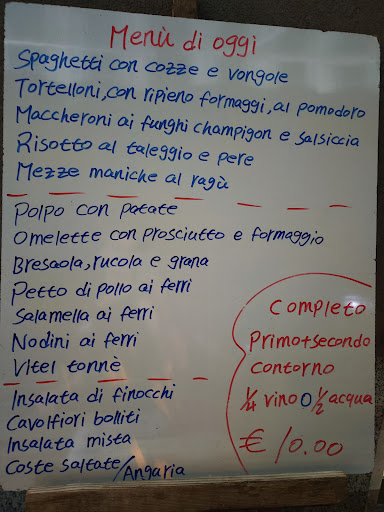 Menù di oggi
Spaghetti con cozze e vongole
Tortelloni, con ripieno formaggi, al pomodoro
Maccheroni ai funghi champigon e salsiccia
Risotto al taleggio e pere
Mezze maniche al ragù
Polpo con patate
Omelette con prosciutto e formaggio
Bresaola, rucola e grana
Petto di pollo ai ferri
Salamella ai ferri
Nodini ai ferri
Vitel tonnè
Insalata di finocchi
Cavolfiori bolliti
Insalata mista
Coste saltate/Angaria
Completo
Primo+secondo
contorno
¼ vino o ½ acqua
€ 10.00